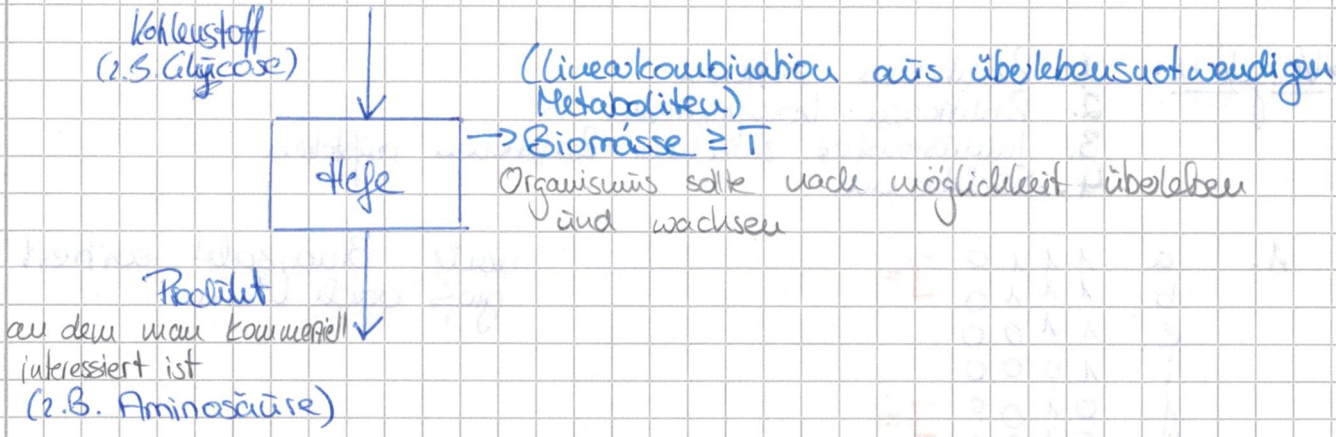 Kohlenstoff
(z.B. Glycose)
(Linearkombination aus überlebensnotwendigen
Metaboliten)
→ Biomasse ≥ T
Hefe
Organismus sollte nach möglichkeit überleben
und wachsen
Produkt
an dem man kommerziell
interessiert ist
(z.B. Aminosäure)